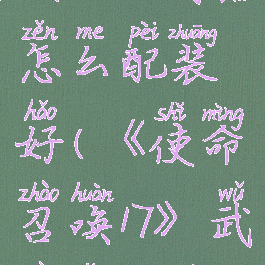 zěn me pèi zhuāng
怎么配装
hǎo shǐ mìng
好(《使命
zhào huàn wǔ
召唤17》武